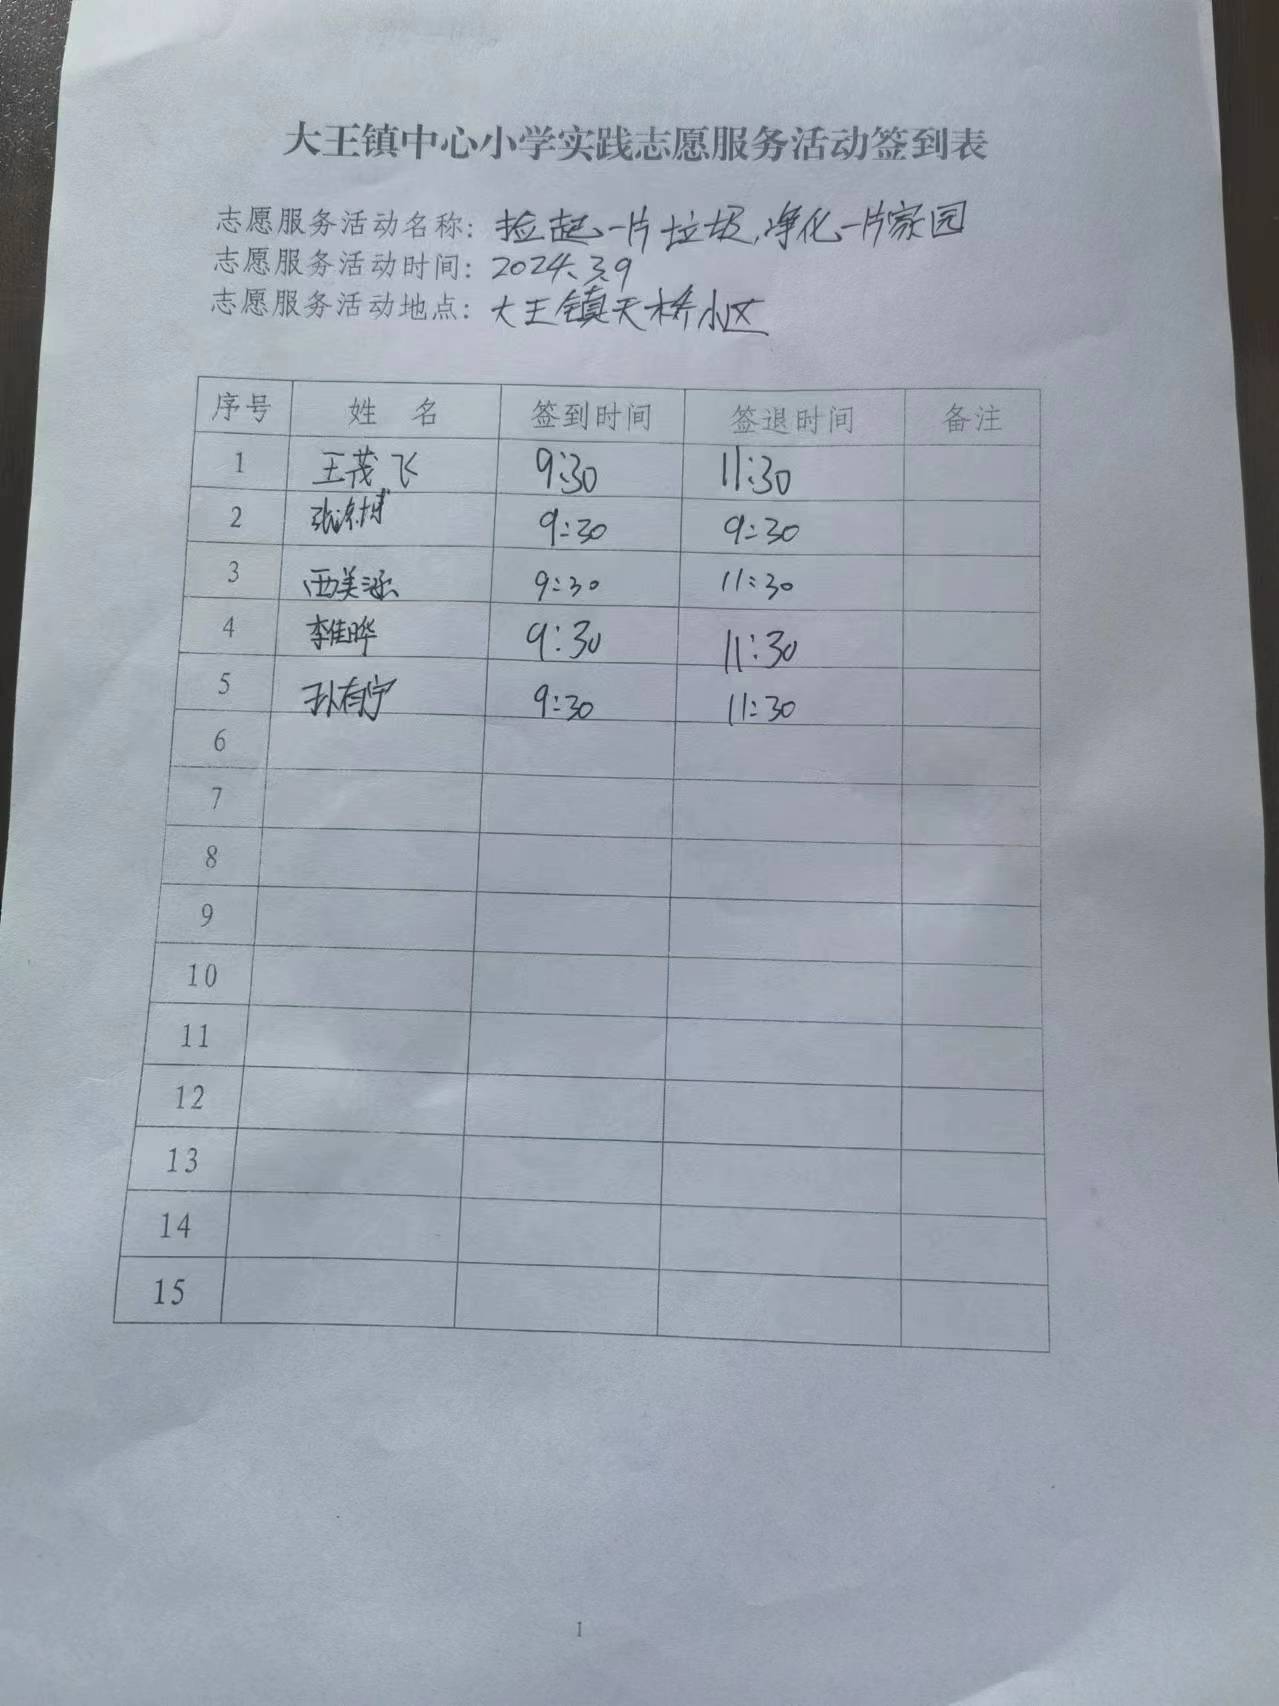 大王镇中心小学实践志愿服务活动签到表
志愿服务活动名称：捡起一片垃圾,净化一片家园
志愿服务活动时间：2024.3.9
志愿服务活动地点：大王镇天桥小区
序号 姓 名 签到时间 签退时间 备注
1 王茂飞 9:30 11:30
2 9:30 9:30
3 西美涵 9:30 11:30
4 李佳晔 9:30 11:30
5 孙有宁 9:30 11:30
6
7
8
9
10
11
12
13
14
15
1